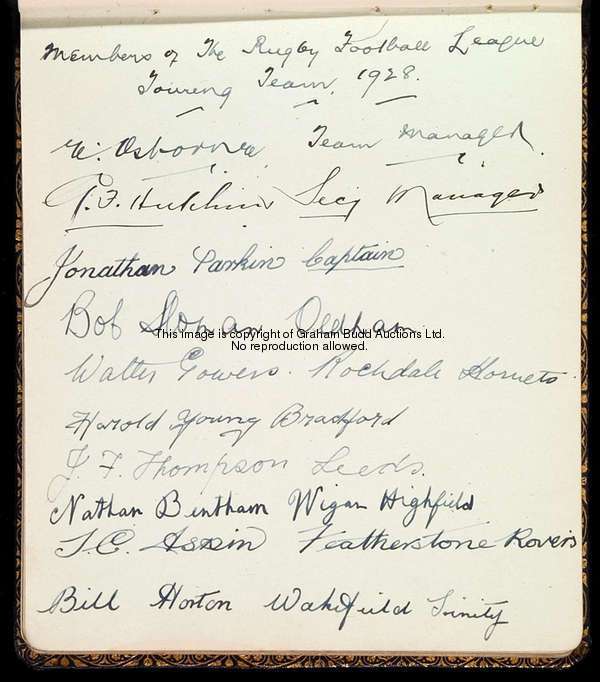 Members of The Rugby Football League
Touring Team, 1928.
E. Osborne, Team Manager.
G.F. Hutchins Secy Manager
Jonathan Parkin Captain
Bob Sloman Oldham.
This image is copyright of Graham Budd Auctions Ltd.
No reproduction allowed.
Walter Gowers. Rochdale Hornets.
Harold Young Bradford
J. F. Thompson Leeds.
Nathan Bentham Wigan Highfield
T.C. Askin Featherstone Rovers
Bill Horton Wakefield Trinity